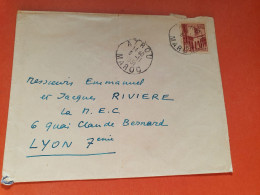 AZROU
MAROC
MAROC
Messieurs Emmanuel
et Jacques RIVIERE
La M.E.C
6 quai Claude Bernard
LYON 7ème